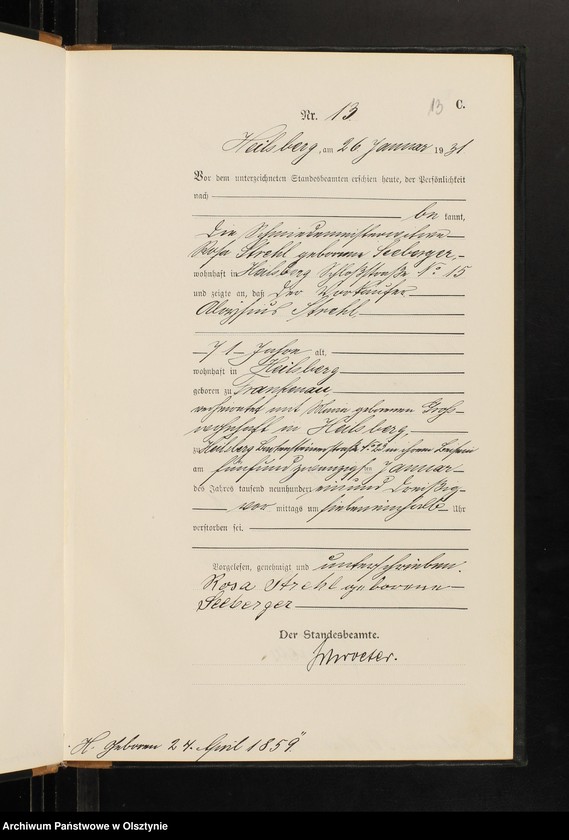 13 C.
Nr. 13
Heilsberg, am 26 Januar 1931
Vor dem unterzeichneten Standesbeamten erschien heute, der Persönlichkeit
nach
be kannt,
die Schmiedemeisterwitwe
Rosa Strehl geborene Seeberger,
wohnhaft in Heilsberg Schloßstraße No 15
und zeigte an, daß der Vorkäufer
Aloysius Strehl
71 Jahre alt,
wohnhaft in Heilsberg
geboren zu Frankenau
verheiratet mit Maria geborenen Groß
wohnhaft in Heilsberg,
zu Heilsberg Bartensteinerstraße No 23 in ihrem Beisein
am fünfundzwanzigsten Januar
des Jahres tausend neunhundert einund dreißig
vor mittags um siebeneinhalb Uhr
verstorben sei.
Vorgelesen, genehmigt und unterschrieben.
Rosa Strehl geborene
Seeberger
Der Standesbeamte.
Schroeter.
H. Geboren 24. April 1859"
Archiwum Państwowe w Olsztynie